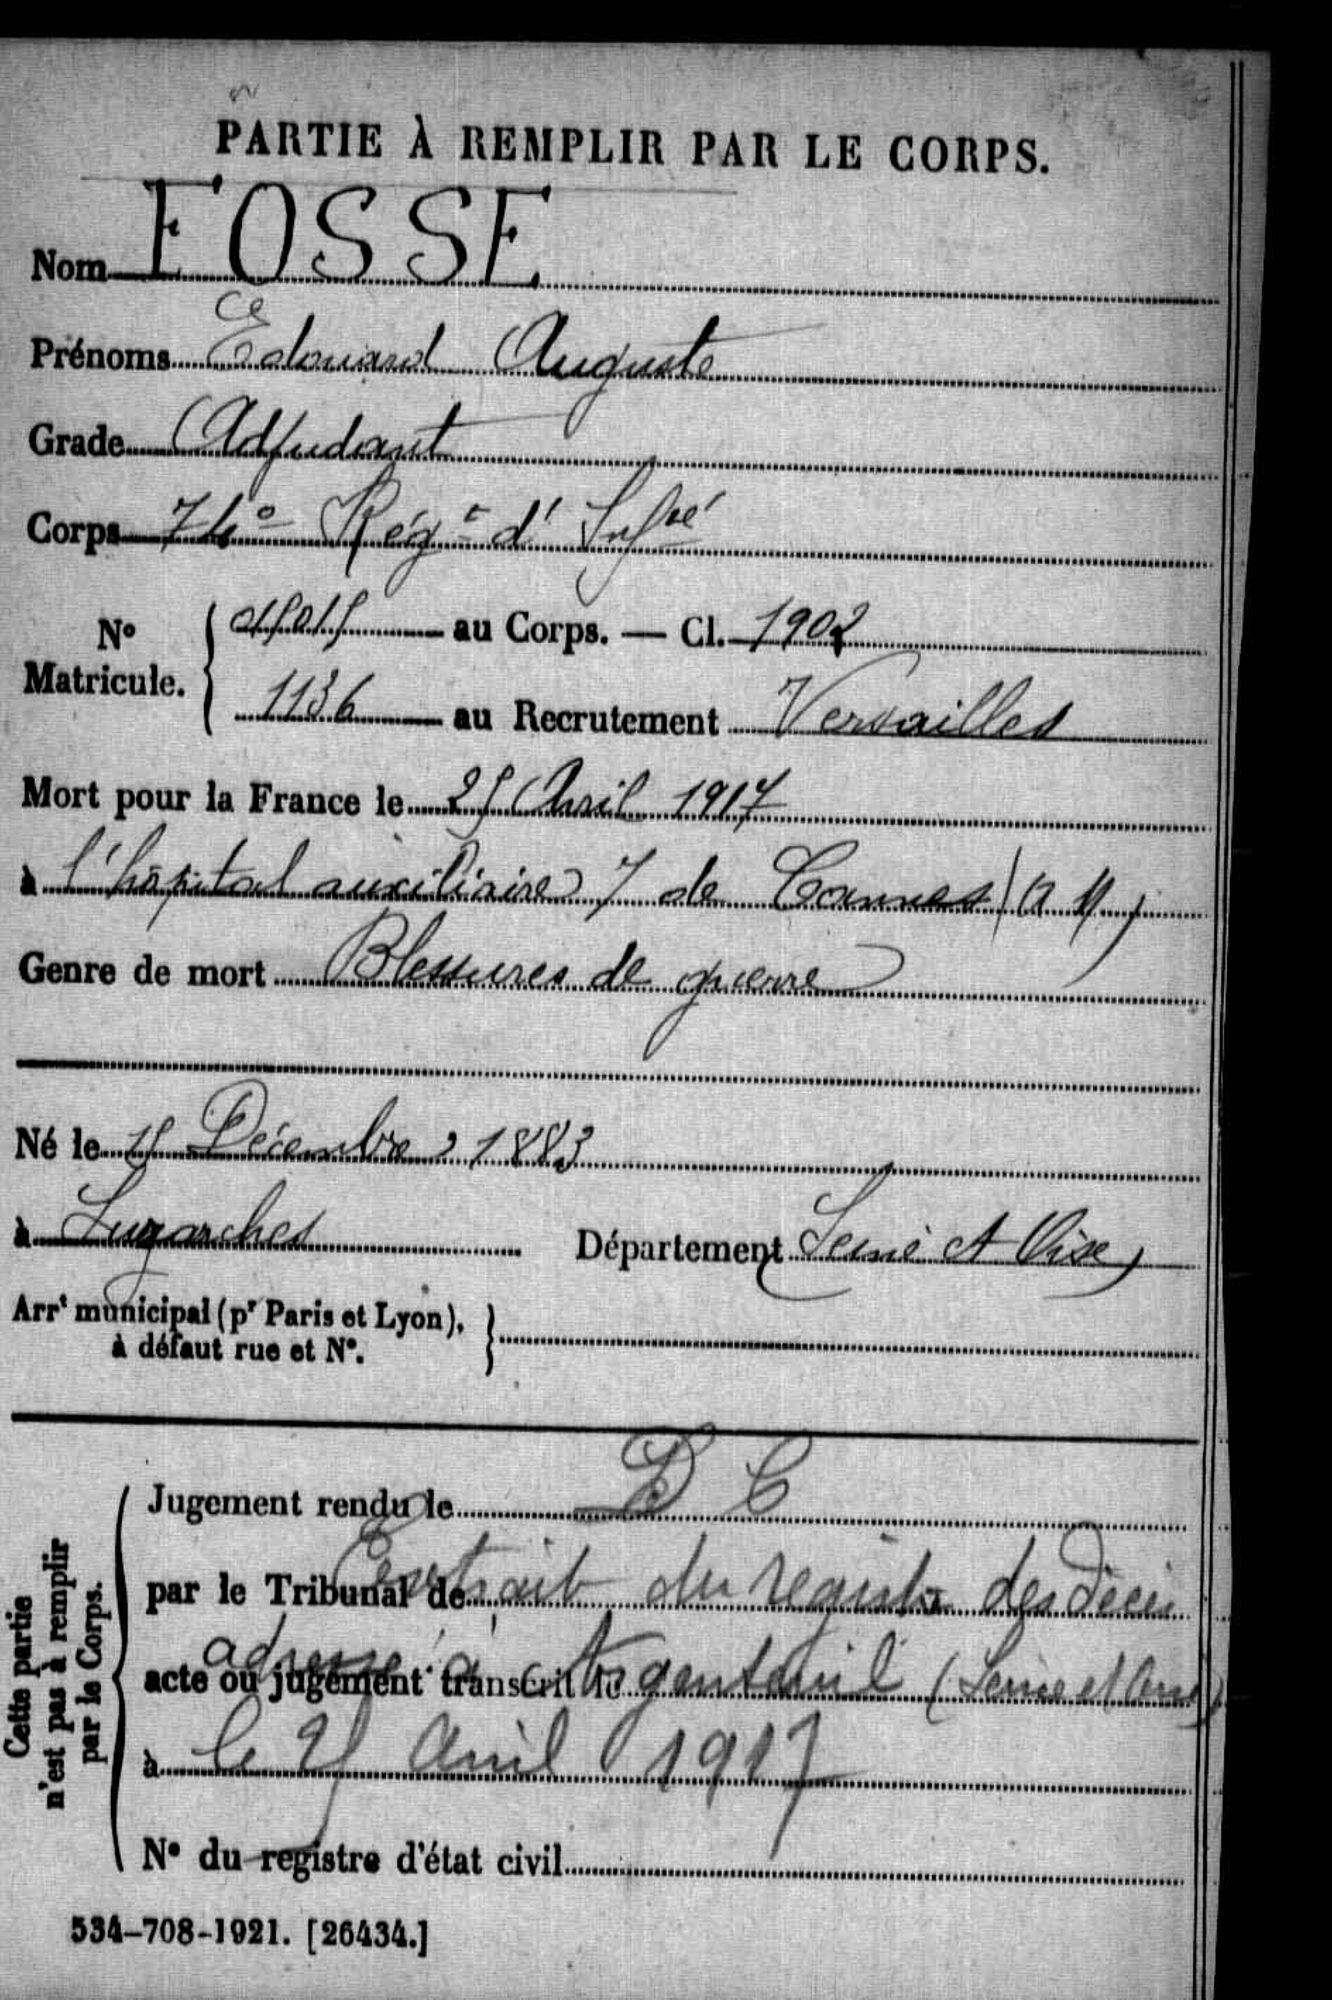 PARTIE À REMPLIR PAR LE CORPS.
Nom FOSSE
Prénoms Edouard Auguste
Grade Adjudant
Corps 74e Régt d'Infie
No Matricule. 15015 au Corps. — Cl. 1902
1136 au Recrutement Versailles
Mort pour la France le 25 Avril 1917
à l'hôpital auxiliaire 7 de Cannes (A M)
Genre de mort Blessures de guerre
Né le 15 Décembre 1883
à Luzarches Département Seine et Oise
Arrt municipal (pr Paris et Lyon), à défaut rue et No.
Cette partie n'est pas à remplir par le Corps.
Jugement rendu le D C
par le Tribunal de Extrait du registre des décès
acte ou jugement transcrit le adressé à Argenteuil (Seine et Oise)
à le 25 Avril 1917
No du registre d'état civil
534-708-1921. [26434.]